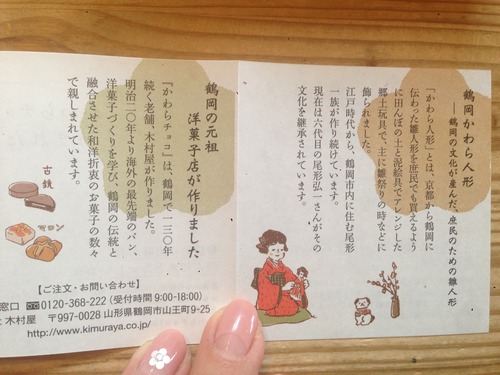 鶴岡かわら人形
―鶴岡の文化が産んだ、庶民のための雛人形
「かわら人形」とは、京都から鶴岡に
伝わった雛人形を庶民でも買えるよう
に田んぼの土と泥絵具でアレンジした
郷土玩具で、主に雛祭りの時などに
飾られました。
江戸時代から、鶴岡市内に住む尾形
一族が作り続けています。
現在は六代目の尾形弘一さんがその
文化を継承されています。
鶴岡の元祖
洋菓子店が作りました
『かわらチョコ』は、鶴岡で一三〇年
続く老舗、木村屋が作りました。
明治二〇年より海外の最先端のパン、
洋菓子づくりを学び、鶴岡の伝統と
融合させた和洋折衷のお菓子の数々
で親しまれています。
古鏡
マロン
【ご注文・お問い合わせ】
窓口 0120-368-222 (受付時間 9:00-18:00)
木村屋 〒997-0028 山形県鶴岡市山王町9-25
http://www.kimuraya.co.jp/